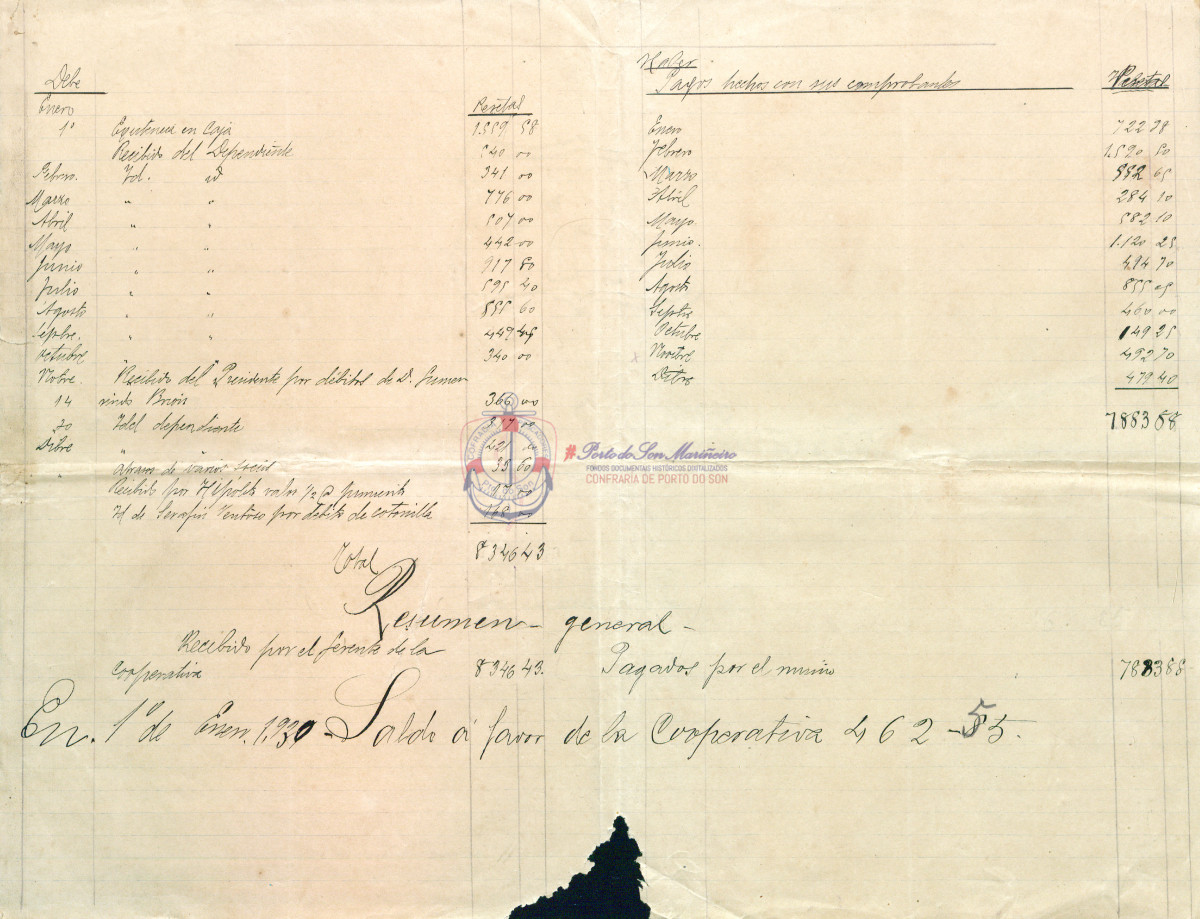 Debe
Enero Pesetas
1º Existencia en Caja 1.559 58
Recibido del Dependiente 540 00
Febrero. Id. id 341 00
Marzo " " 776 00
Abril " " 507 00
Mayo " " 442 00
Junio " " 917 80
Julio " " 595 40
Agosto " " 555 60
Sepbre. " " 449 45
Octubre " " 340 00
Nobre. Recibido del Presidente por débitos de D. Gumer
14 sindo 366 00
30 Id del dependiente
Dibre " 221
" Atrasos de varios socios 39 60
Recibido por Hipolito valor 1/2 @ pimiento 17 00
Id de Serafin Ventoso por débito de
Total 8346 43
Haber
Pagos hechos con sus comprobantes Pesetas
Enero 722 38
Febrero 1.520 50
Marzo 552 65
Abril 284 10
Mayo. 582 10
Junio. 1.120 25
Julio 494 70
Agosto 855 05
Septbre 460 00
Octubre 149 25
Novbre 492 70
Dibre 479 40
7.883 88
CONFRARIA
#Porto do Son Mariñeiro
FONDOS DOCUMENTAIS HISTÓRICOS DIGITALIZADOS
CONFRARIA DE PORTO DO SON
Resumen general -
Recibido por el Gerente de la
Cooperativa 8346 43. Pagados por el mismo 7883 88
En. 1º de Enero. 1.930 Saldo á favor de la Cooperativa 462-55.